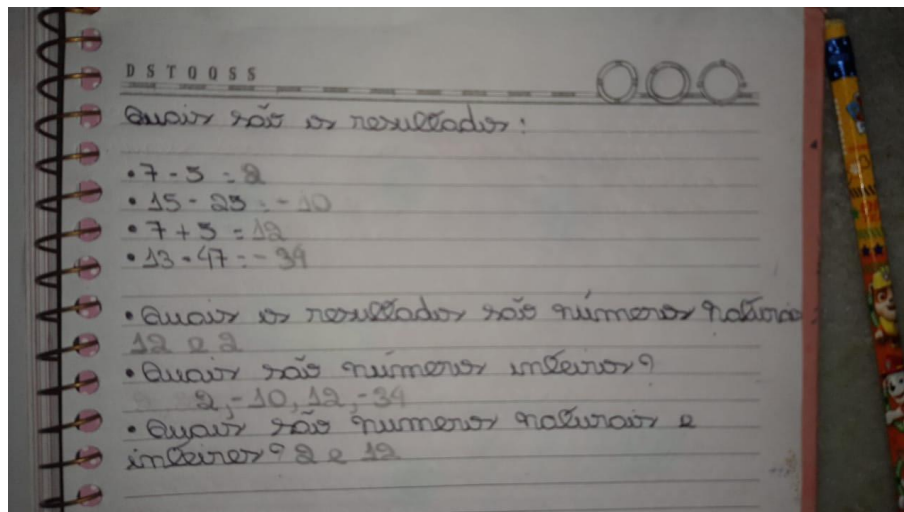 D S T Q Q S S
Quais são os resultados:
• 7 - 5 = 2
• 15 - 25 = -10
• 7 + 5 = 12
• 13 - 47 = - 34
• Quais os resultados são números naturais:
12 e 2
• Quais são números inteiros?
2, -10, 12, -34
• Quais são numeros naturais e
inteiros? 2 e 12